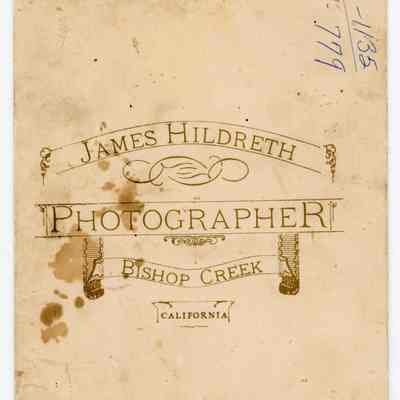 -1135
779
JAMES HILDRETH
PHOTOGRAPHER
BISHOP CREEK
CALIFORNIA